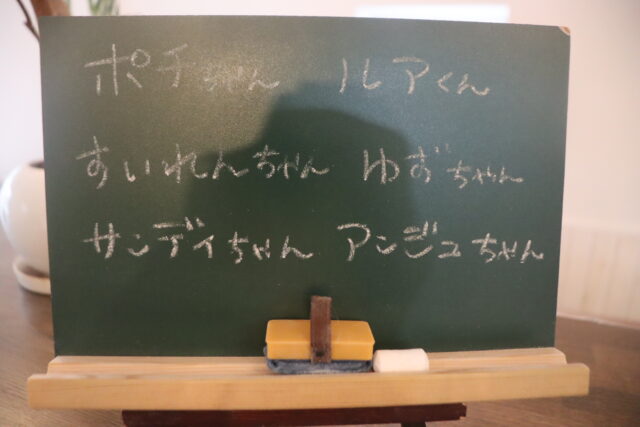 ポチちゃん ルアくん
すいれんちゃん ゆずちゃん
サンディちゃん アンジュちゃん